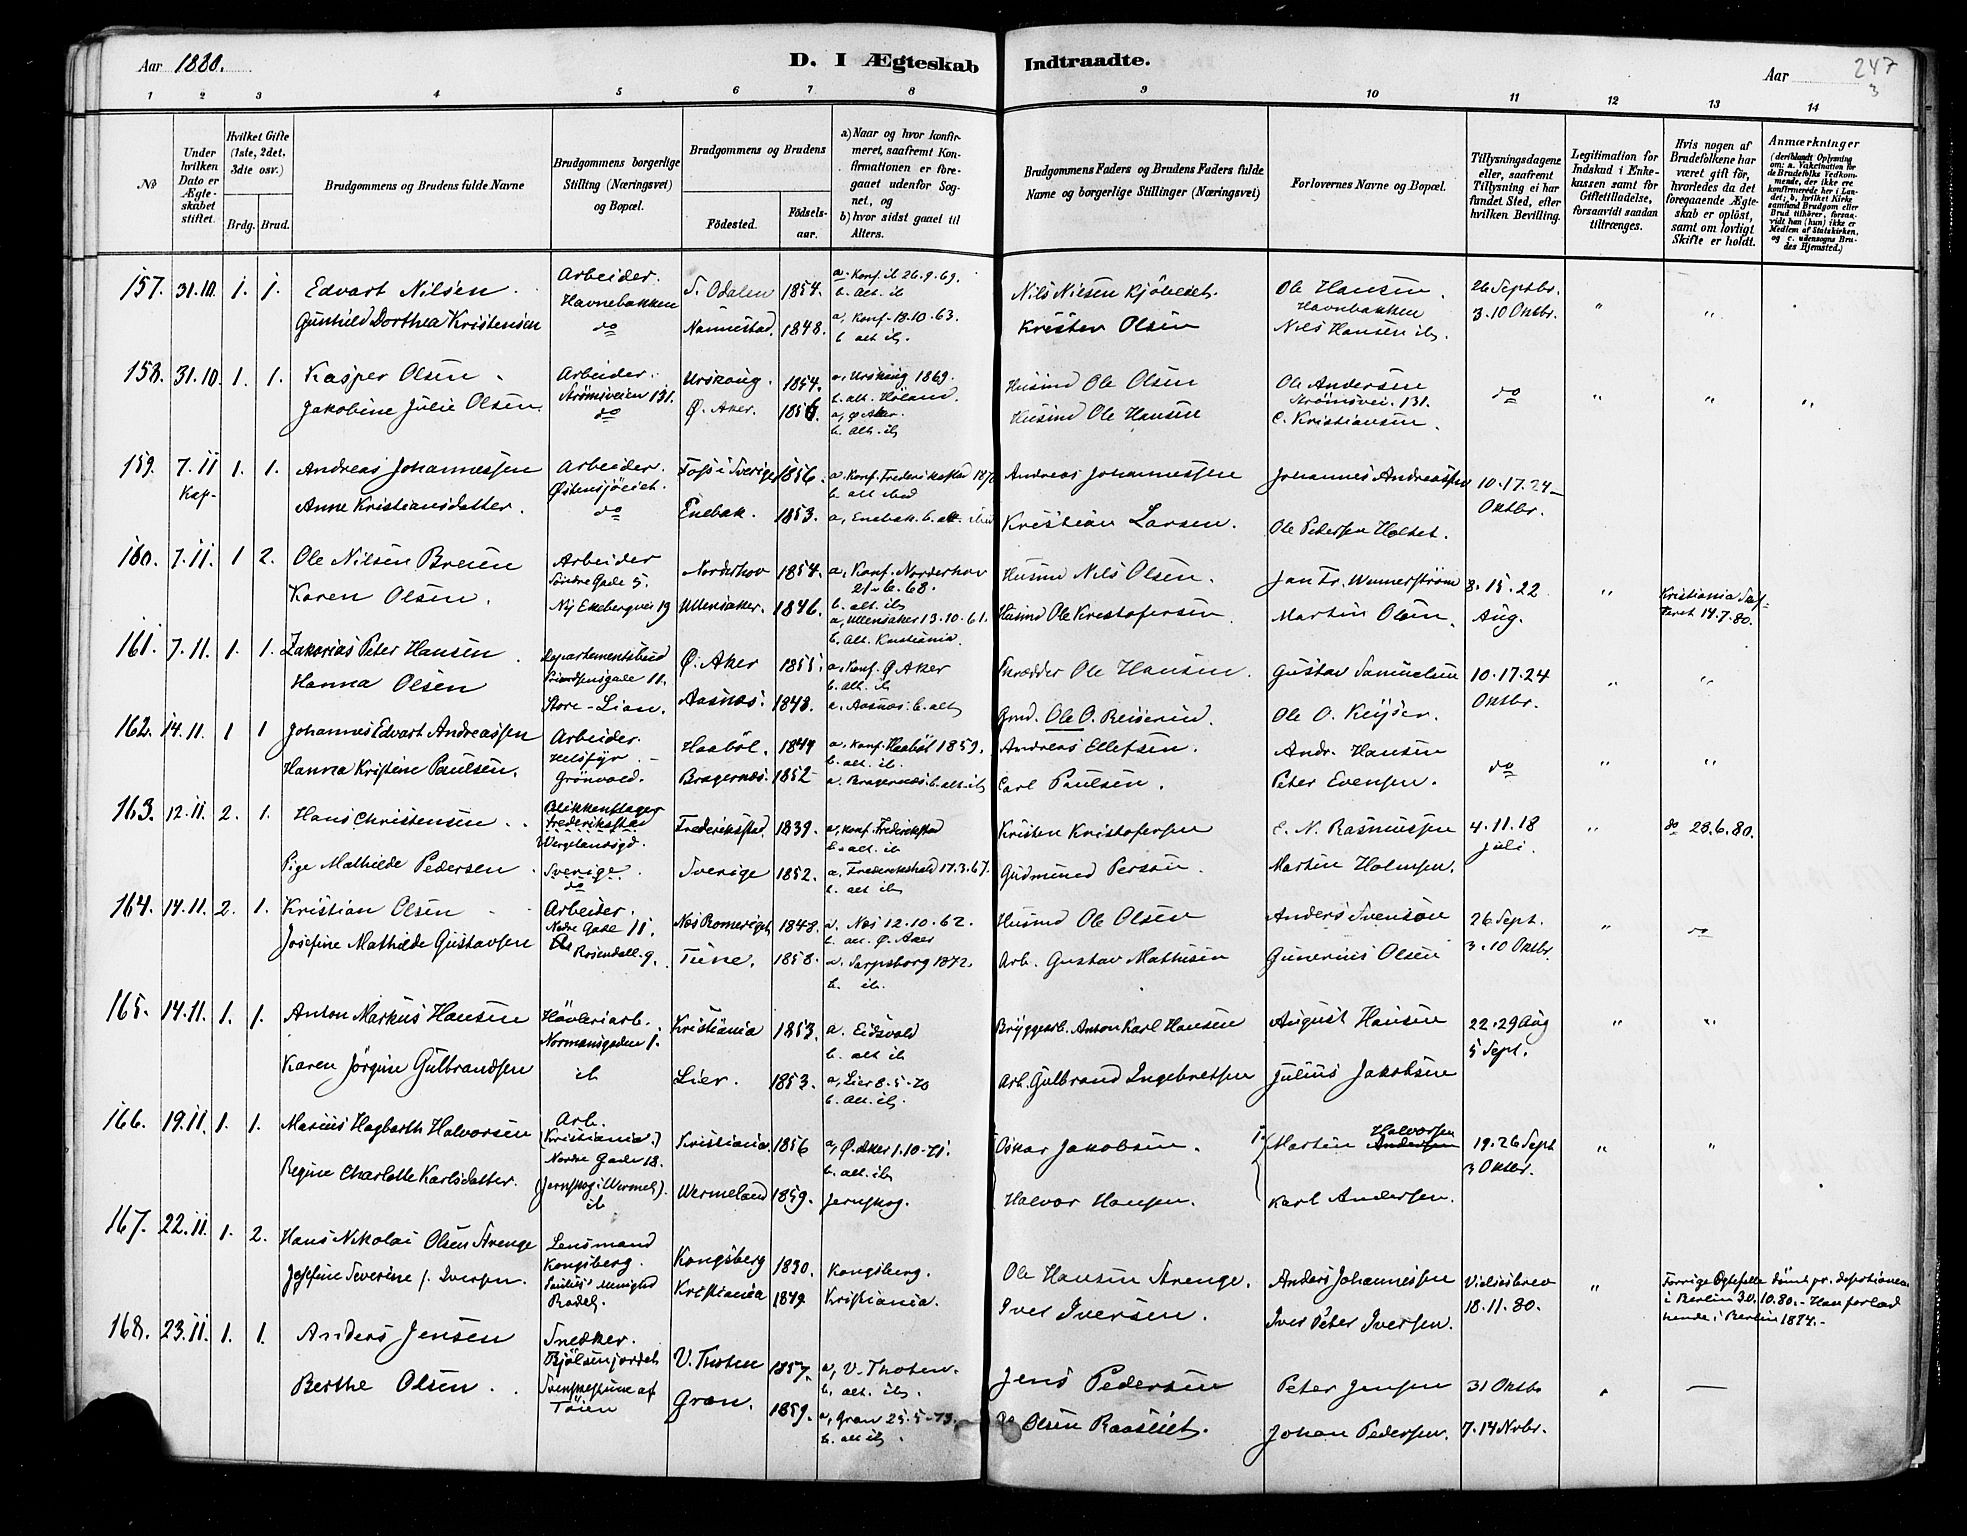 Aar 1880.
D. I Ægteskab Indtraadte.
Aar
247
3
1 2 3 4 5 6 7 8 9 10 11 12 13 14
No
Under hvilken Dato er Ægteskabet stiftet.
Hvilket Gifte (1ste, 2det, 3die osv.)
Brdg. Brud.
Brudgommens og Brudens fulde Navne
Brudgommens borgerlige Stilling (Næringsvei) og Bopæl.
Brudgommens og Brudens
Fødested.
Fødselsaar.
a) Naar og hvor konfirmeret, saafremt Konfirmationen er foregaaet udenfor Sognet, og
b) hvor sidst gaaet til Alters.
Brudgommens Faders og Brudens Faders fulde Navne og borgerlige Stillinger (Næringsvei)
Forlovernes Navne og Bopæl.
Tillysningsdagene eller, saafremt Tillysning ei har fundet Sted, efter hvilken Bevilling.
Legitimation for Indskud i Enkekassen samt for Giftetilladelse, forsaavidt saadan tiltrænges.
Hvis nogen af Brudefolkene har været gift før, hvorledes da det foregaaende Ægteskab er opløst, samt om lovligt Skifte er holdt.
Anmærkninger
(deriblandt Oplysning om: a. Vakcination for de Brudefolks Vedkommende, der ikke ere konfirmerede her i Landet; b. hvilket Kirkesamfund Brudgom eller Brud tilhører, forsaavidt han (hun) ikke er Medlem af Statskirken, og c. udensogns Brudes Hjemsted.)
157. 31.10. 1. 1. Edvart Nilsen. Arbeider. Havnebakken S. Odalen 1854. a. Konf. ib 26.9.69. b. Alt. ib Nils Nilsen Kjøblest. Ole Hansen. Havnbakken 26 Septbr. " " "
Gunhild Dorthea Kristensen do Nannestad. 1848. a, Konf. 18.10.63. b. alt ib. Kristen Olsen Nils Hansen ib. 3.10 Oktbr.
158. 31.10. 1. 1. Kasper Olsen. Arbeider. Strömsveien 131. Urskoug. 1854. a, Urskoug 1869. b. alt. Höland. Husmd Ole Olsen Ole Andersen Strömsvei. 131. do " " "
Jakobine Julie Olsen. do Ø. Aker. 1856 a, Ø Aker. b. alt. ib Husmd Ole Hansen C. Kristiansen.
159. 7.11 Kap- 1. 1. Andreas Johannessen Arbeider. Østensjöeiet. Foss i Sverige 1856. a. Konf. Frederikstad 187 b. alt ibid Andreas Johannessen Johannes Andreassen 10.17.24 Oktbr.
Anne Kristiansdatter. do Enebak. 1853. a, Enebak. b. alt. ibid Kristian Larsen. Ole Pedersen Holset.
160. 7.11. 1 2. Ole Nilsen Breien Arbeider Søndre Gade 5. Norderhov 1854. a, Konf. Norderhov 21.6.68. b. alt. ib Husmd Nils Olsen. Jan Fr. Wennerström 8.15.22 Aug. " Kristiania 14.7.80.
Karen Olsen. Ny Ekebergvei 19 Ullensaker. 1846. a, Ullensaker 13.10.61. b. Alt. Kristiania. Husmd Ole Kristofersen Martin Olsen.
161. 7.11. 1. 1. Zakarias Peter Hansen. Departementsbud 11. Ø. Aker 1855 a. Konf. Ø Aker b. alt. ib Skrædder Ole Hansen. Gustav Samuelsen 10.17.24 Oktbr. " "
Hanna Olsen Store-Lian. Aasnæs. 1848. a. Aasnæs. b. alt Gmd. Ole O. Beiserud. Ole O. Keyser.
162. 14.11. 1 1 Johannes Edvart Andreassen Arbeider. Helsfyr. Haabøl. 1844 a. Konf. Haabøl 1859. b. alt. ib. Andreas Ellefsen. Andr. Hansen do " "
Hanna Kristine Paulsen. Grönvold. Bragernæs. 1852 a. Bragernæs. b. alt. ib Carl Paulsen. Peter Evensen.
163. 12.11. 2. 1. Hans Christensen. Blikkenslager Frederikstad Frederikstad. 1839. a, Konf. Frederikstad b. alt. ib Kristen Kristofersen E. N. Rasmussen 4.11.18 Juli. " do 28.6.80.
Pige Mathilde Pedersen. Sverige. do Sverige 1852. a, Frederikshald 17.3.67. b. alt ib Gudmund Person. Martin Holmsen.
164. 14.11. 2. 1. Kristian Olsen Arbeider. Nedre Gade 11. Næs Romerige 1848. a. Næs 12.10.62. b. alt. Ø. Aker Husmd Ole Olsen Anders Svenson 26 Sept. " do
Josefine Mathilde Gustavsen Rosendall. 9. Tune. 1858. a. Sarpsborg 1872. b. ib. Arb. Gustav Mathisen Gunerius Olsen 3.10 Oktbr.
165. 14.11. 1. 1. Anton Markus Hansen Høvleriarb. Normansgaden 1. Kristiania 1853. a. Eidsvold b. alt ib Bryggearb. Anton Karl Hansen August Hansen 22.29 Aug 5 Sept. " "
Karen Jörgine Gulbrandsen ib Lier. 1853. a, Lier 8.5.70 b. alt. ib. Arb. Gulbrand Ingebretsen Julius Jakobsen
166. 19.11. 1. 1. Marius Hagbarth Halvorsen Arb. (Kristiania.) Nordre Gade 18. Kristiania 1856 a, Ø. Aker 1.10.71. b. alt. ib Oskar Jakobsen. Martin Andersen Halvorsen 19.26 Sept 3 Oktbr. " "
Regine Charlotte Karlsdatter. (Jernskog i Wermel.). ib Wermeland 1859. Jernskog. Halvor Hansen. Karl Andersen.
167. 22.11. 1. 2. Hans Nikolai Olsen Strenge Lensmand Kongsberg. Kongsberg 1830. Kongsberg. Ole Hansen Strenge. Anders Johannessen Vielsesbrev 18.11.80. " Forrige Egtefelle dömt pr. i Berlin 30.10.80. - Han forlod hende i Berlin 1874.-
Josefine Severine f. Iversen. Paulus' Menighed Kristiania 1849 Kristiania. Iver Iversen. Iver Peter Iversen.
168. 23.11. 1. 1. Anders Jensen Snedker. Bjölsenjordet V. Thoten 1857. a, V. Thoten. b. alt. ib. Jens Pedersen Peter Jensen 31 Oktbr " —
Berthe Olsen. Svenskestuene af Töien Gran. 1859. a, Gran 25.5.73. b. alt ib. Olsen Raaseiet. Johan Pedersen. 7.14 Nvbr.